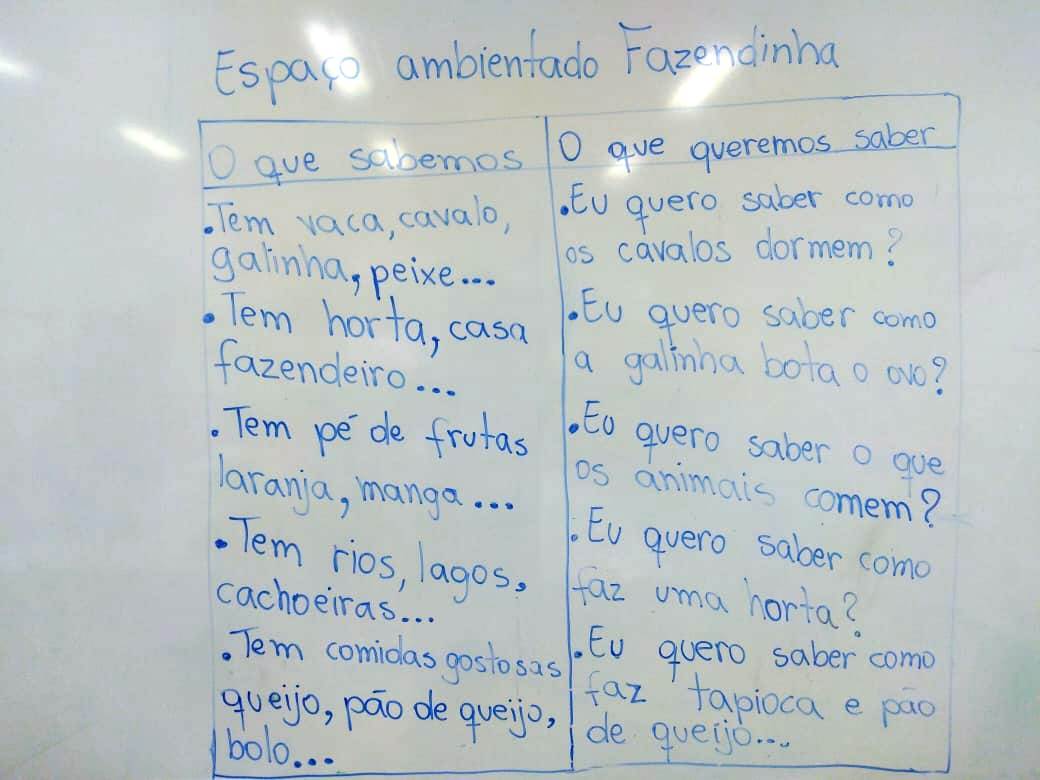 Espaço ambientado Fazendinha
O que sabemos
.Tem vaca, cavalo,
galinha, peixe...
.Tem horta, casa
fazendeiro...
.Tem pé de frutas
laranja, manga...
.Tem rios, lagos,
cachoeiras...
.Tem comidas gostosas
queijo, pão de queijo,
bolo...
O que queremos saber
.Eu quero saber como
os cavalos dormem?
.Eu quero saber como
a galinha bota o ovo?
.Eu quero saber o que
os animais comem?
.Eu quero saber como
faz uma horta?
.Eu quero saber como
faz tapioca e pão
de queijo...